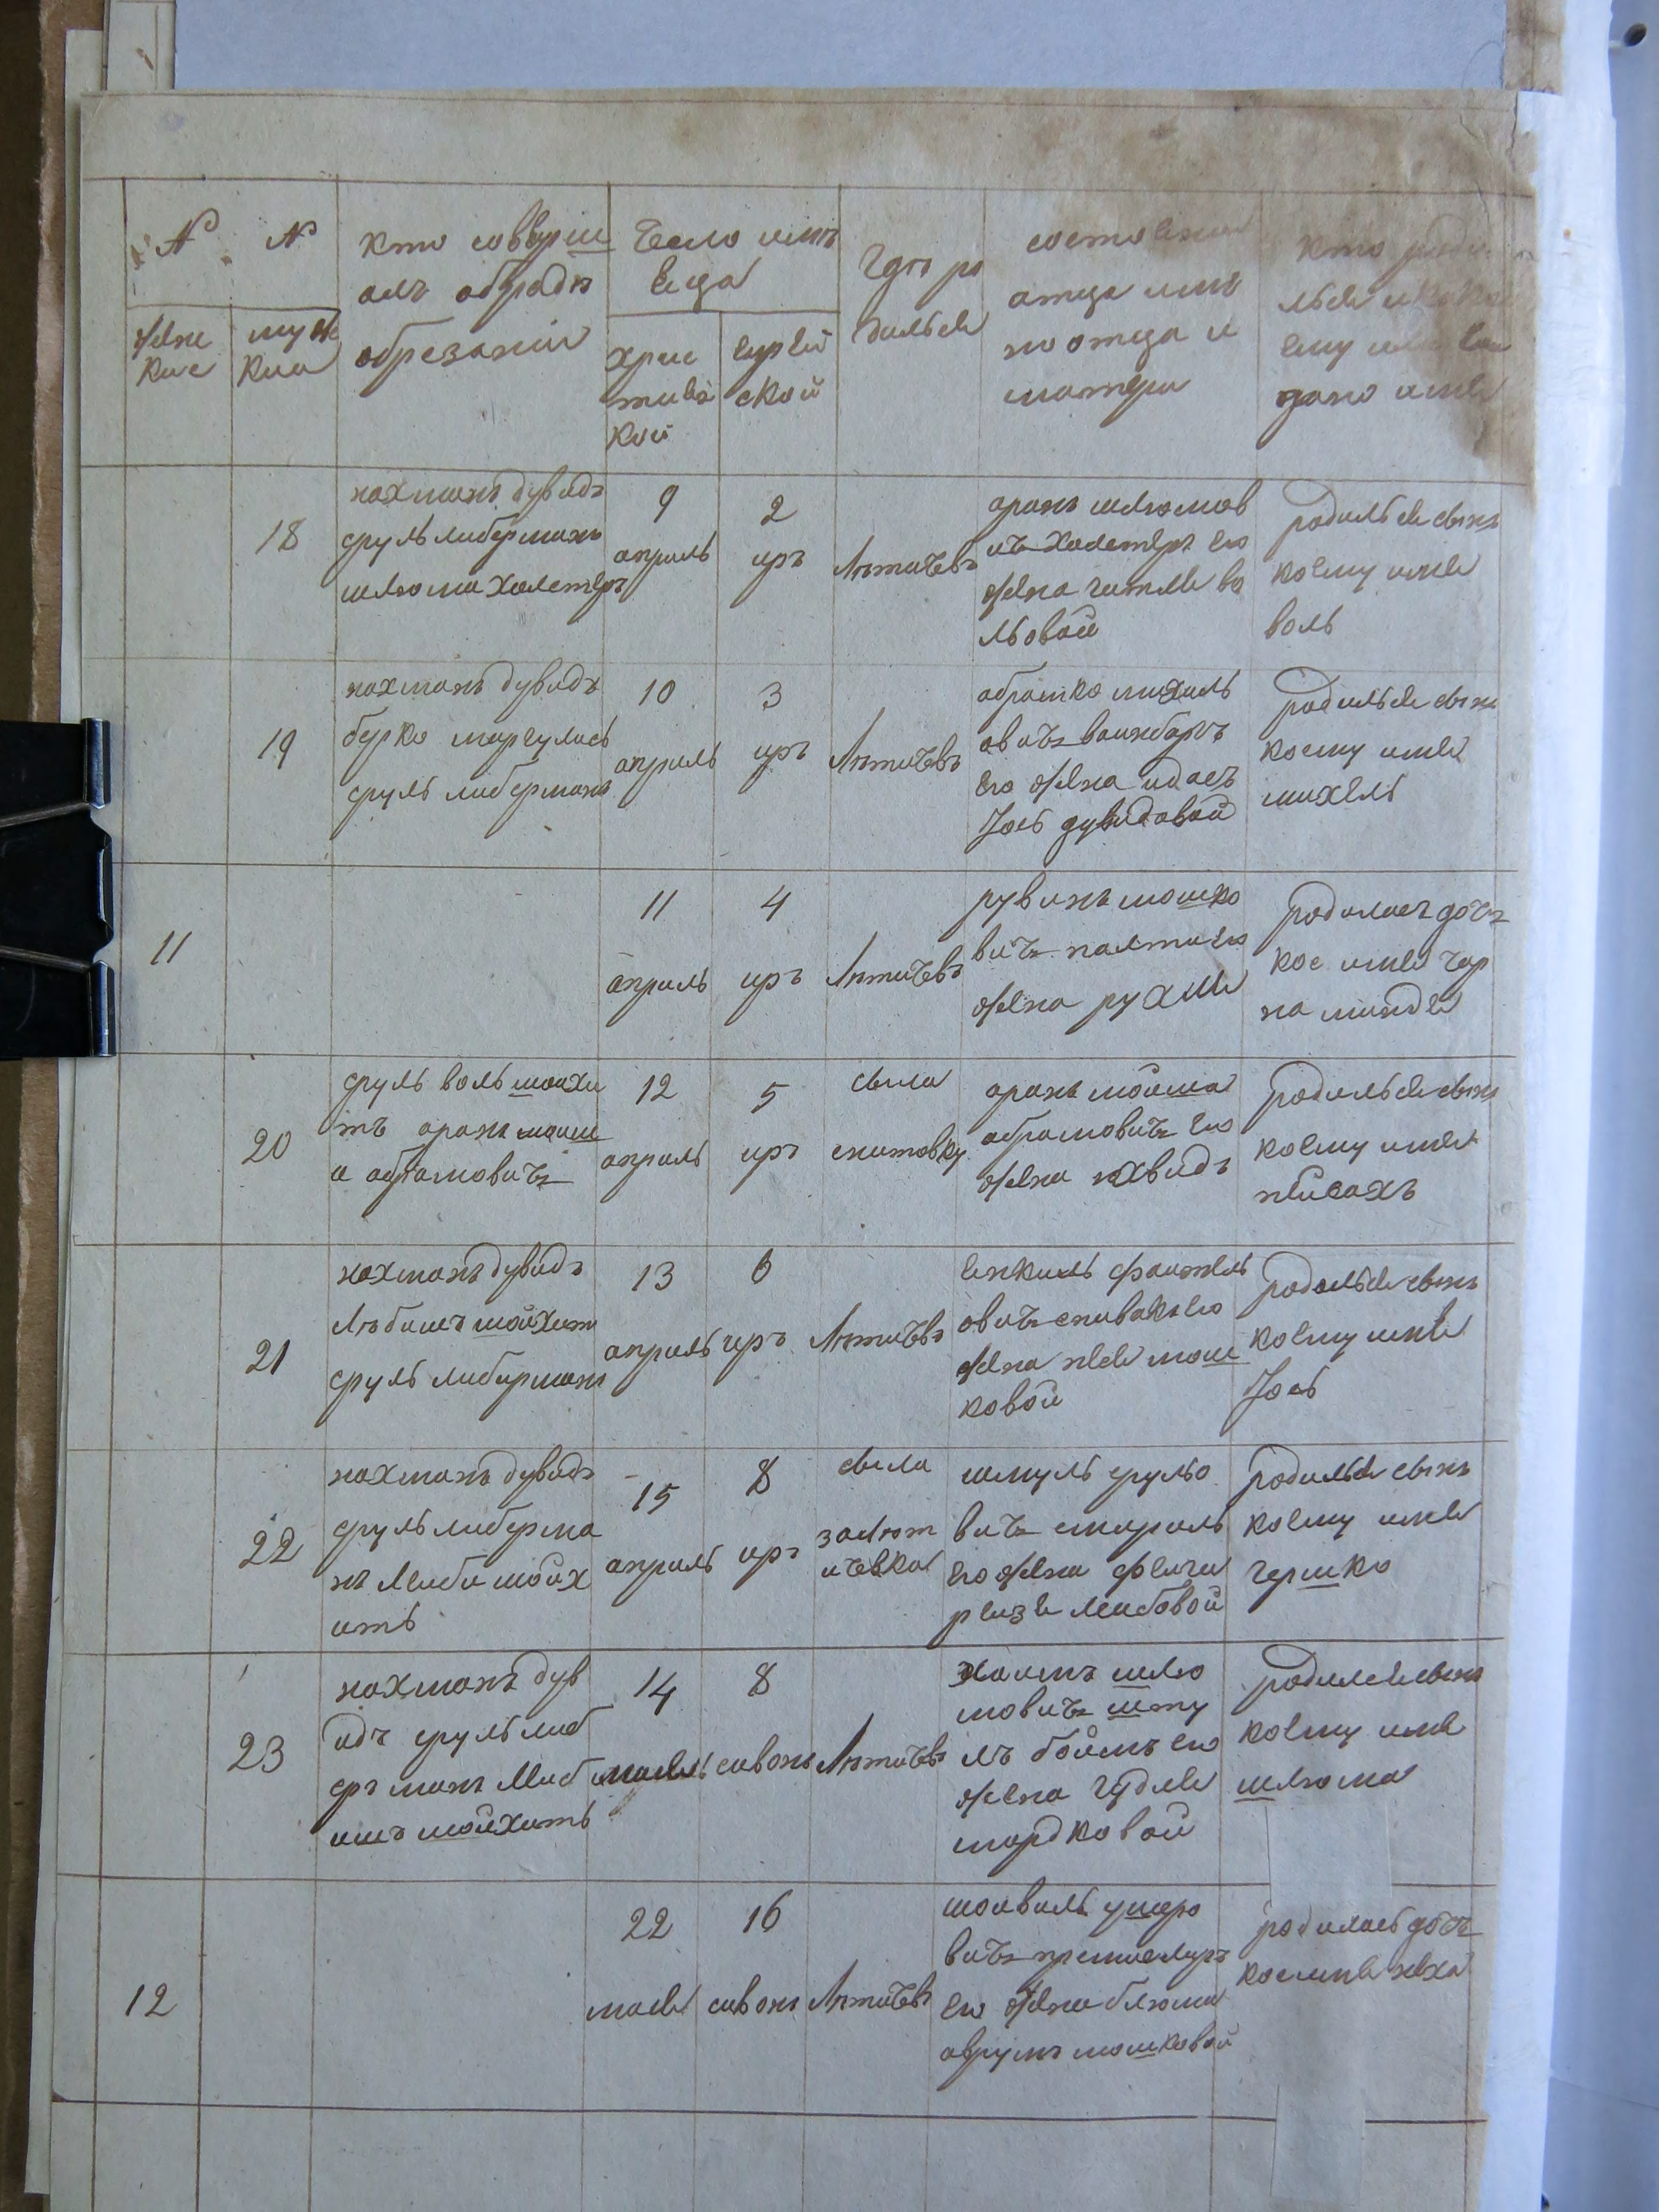 № №
женс
кие
муж
киа
кто соверши
алъ обрадъ
обрезании
Число имъ
сеца
хрис
тианс
кой
еврей
ской
Где ро
дилься
состоянии
отца имъ
я отца и
матери
кто роди
лься и какое
ему или ей
дано имя
18
нахманъ дувидъ
сруль либерманъ
шлюма халемеръ
9
апрыль
2
иръ
Лѣтичевъ
аранъ шлюмов
ичъ халемеръ его
жена гитля во
льовой
родилься сынъ
коему имя
воль
19
нахманъ дувидъ
берко маргулись
сруль либерманъ
10
апрыль
3
иръ
Лѣтичевъ
абрамко михиль
овичъ ваинбаргъ
его жена идасъ
Jось дувидовой
родилься сынъ
коему имя
михель
11
11
апрыль
4
иръ
Лѣтичевъ
рувинъ мошко
вичъ палти его
жена рухля
родилась дочъ
кое имя чар
на миндя
20
сруль воль шойхи
тъ аранъ моиш
а абрамовичъ
12
апрыль
5
иръ
сыла
снитовку
аранъ мойша
абрамовичъ его
жена яхвидъ
родилься сынъ
коему имя
пейсахъ
21
нахманъ дувидъ
Лѣбишъ шойхит
сруль либирманъ
13
апрыль
6
иръ
Лѣтичевъ
енкиль фаител
овичъ спивакъ его
жена нися мош
ковой
родилься сынъ
коему имя
Jось
22
нахманъ дувидъ
сруль либерма
нъ Леиби шойх
итъ
15
апрыль
8
иръ
сыла
залют
ичевка
шмуль срульо
вичъ стироль
его жена феига
реизя леибовой
родилься сынъ
коему имя
гершко
23
нахманъ дув
идъ сруль либ
еръ манъ Леиб
ишъ шойхитъ
14
маия
8
сивонъ
Лѣтичевъ
хаимъ шлю
мовичъ шту
лъ боимъ его
жена гудля
мордковой
родился сынъ
коему имя
шлюма
12
22
маия
16
сивонъ
Лѣтичевъ
шоивиль ушро
вичъ премислиръ
его жена блюма
аврумъ мошковой
родилась дочъ
кое имя неха